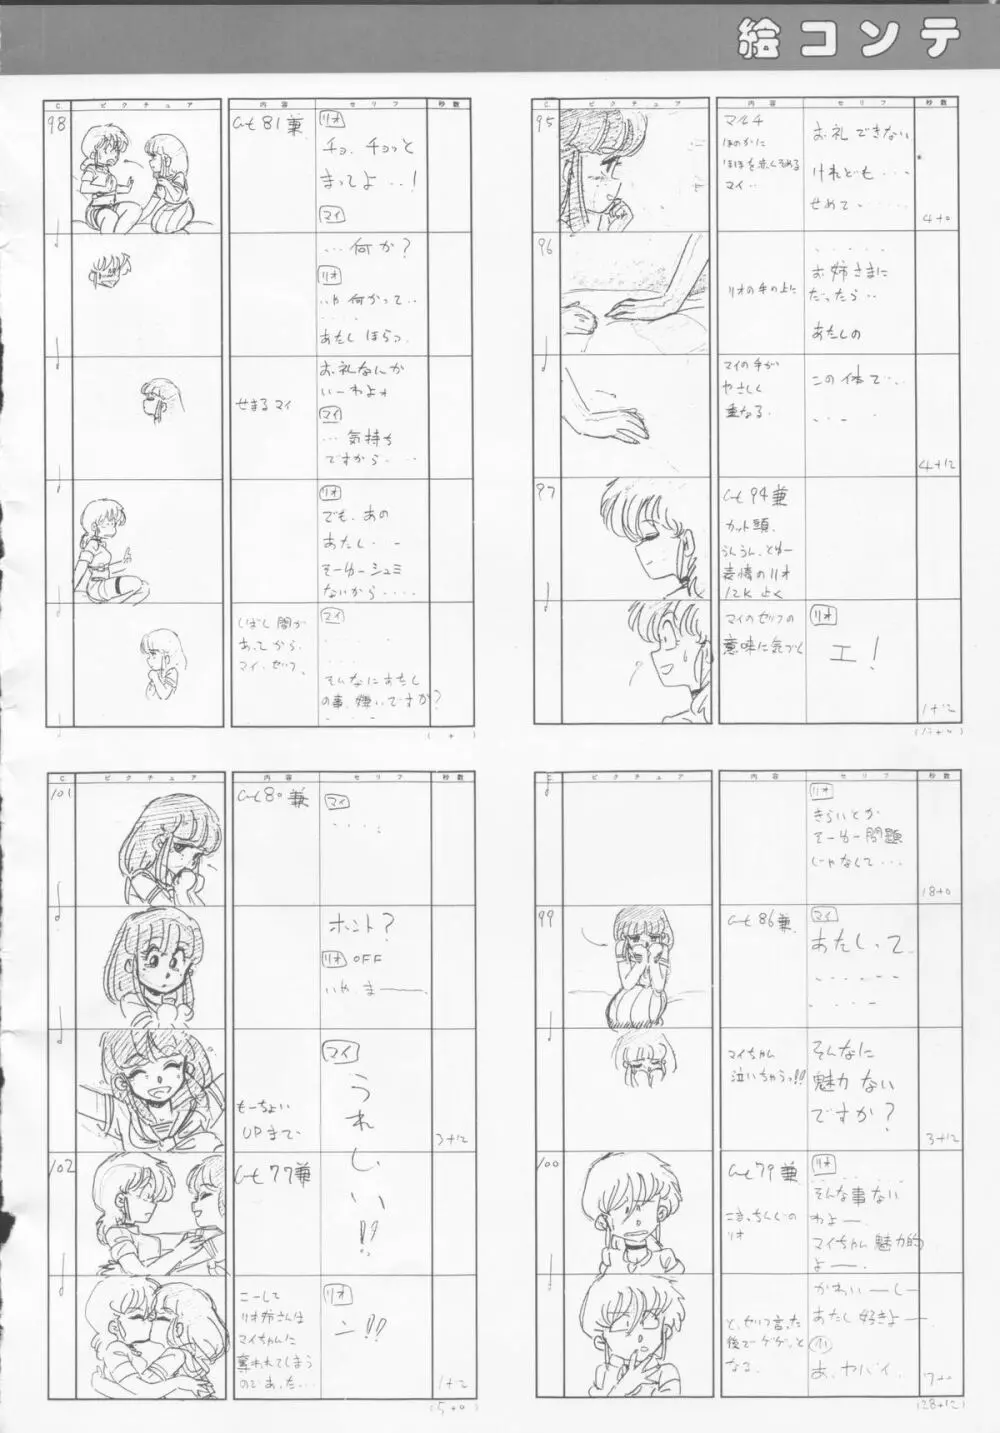 絵コンテ
C. ピクチュア 内容 セリフ 秒数
95
マルチ
ほのかに
ほほを赤くそめる
マイ‥
お礼できない
けれども‥‥
せめて‥‥‥
4+0
96
リオの手の上に
‥‥‥
お姉さまに
だったら‥
あたしの
マイの手が
やさしく
重なる.
この体で‥‥
4+12
97
Cut 94兼
カット頭.
うんうん、とゆー
表情のリオ
12K よく
マイのセリフの
意味に気づく
リオ
エ!
1+12
C. ピクチュア 内容 セリフ 秒数
98
Cut 81兼
リオ
チョ、チョっと
まってよ‥!
マイ
‥何か?
リオ
いや 何かって‥
‥‥
あたし ほらっ
せまるマイ
お礼なにか
いーわよォ
マイ
‥気持ち
ですから‥‥
リオ
でも、あの
あたし‥‥
そーゆーシュミ
ないから‥‥
しばし 間が
あってから、
マイ、セリフ、
マイ
‥‥
‥‥
そんなにあたし
の事、嫌いですか?
( + )
C. ピクチュア 内容 セリフ 秒数
リオ
きらいとか
そーゆー問題
じゃなくて‥‥
18+0
99
Cut 86兼
マイ
あたしって
‥‥‥
‥‥‥
マイちゃん
泣いちゃうっ!!
そんなに
魅力ない
ですか?
3+12
100
Cut 79兼
リオ
そんな事ない
わよー.
マイちゃん魅力的
よー.
と、セリフ言った
後でゲゲッと
なる.
かわいーしー
あたし好きよー.
小
あ、ヤバイ.
7+0
(28+12)
C. ピクチュア 内容 セリフ 秒数
101
Cut 80兼
マイ
‥‥.
ホント?
リオ OFF
いや、まー.
もーちょい
UPまで
マイ
うれしい!!
3+12
102
Cut 77兼
こーして
リオ姉さんは
マイちゃんに
奪われてしまう
のであった‥‥
リオ
ン!!
1+12
(5+0)